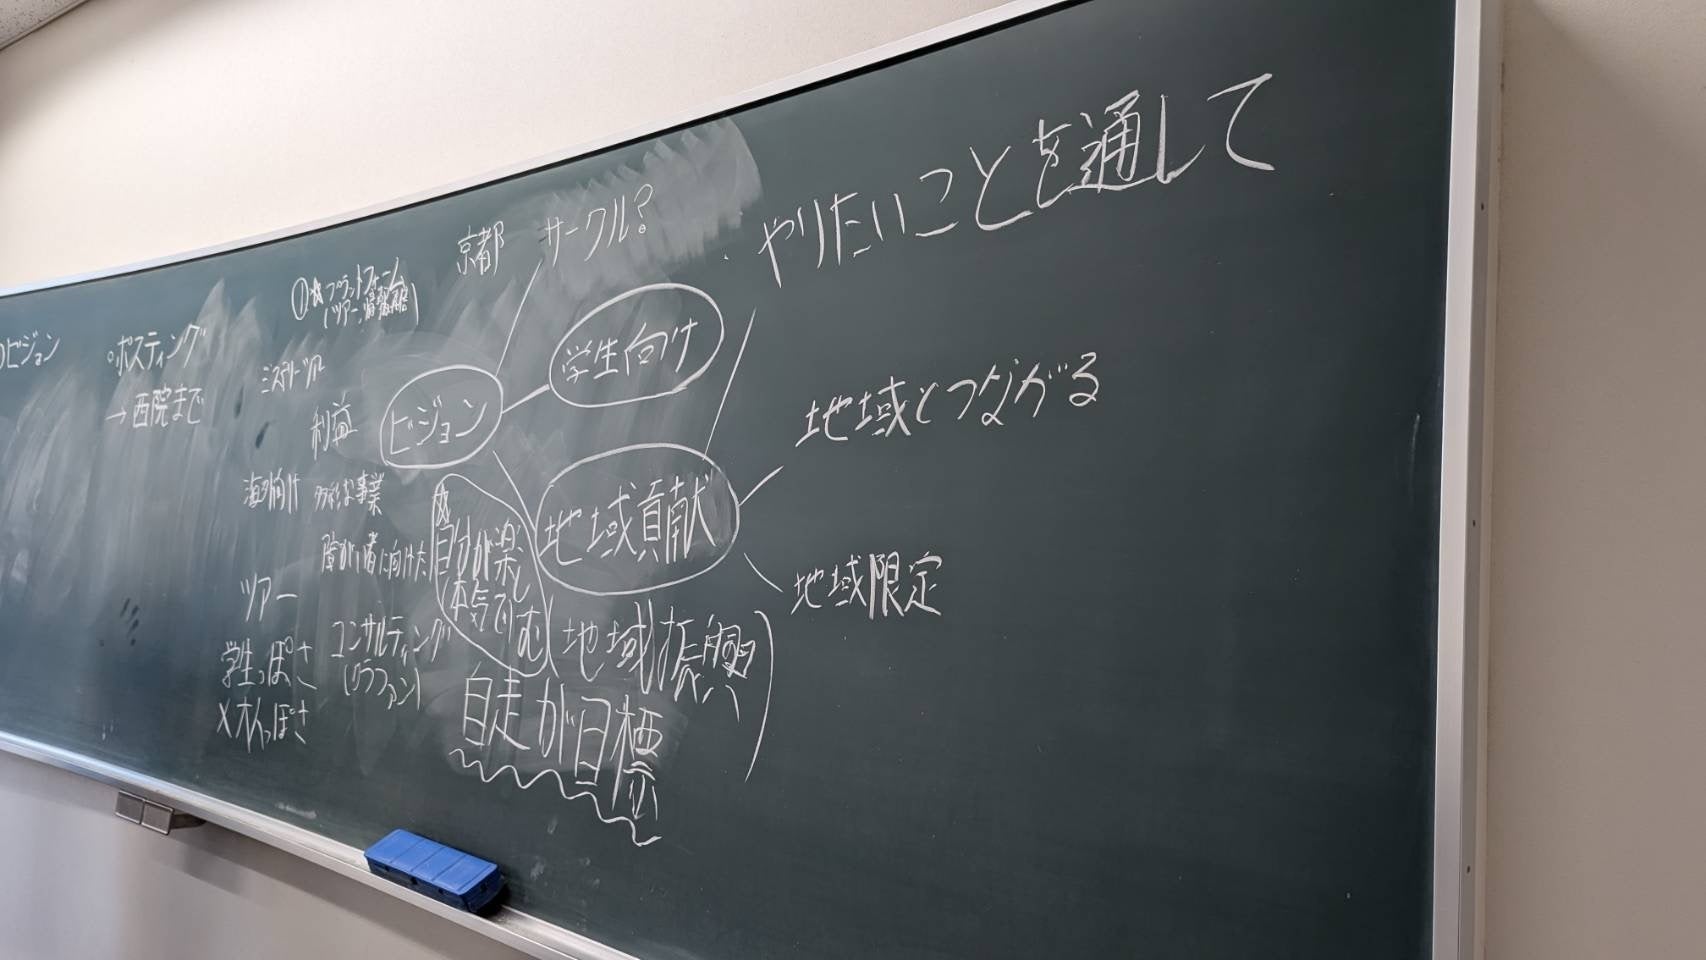 ビジョン
ポスティング
→西院まで
①☆プラットフォーム
(ツアー、情報発信)
ミステリーツアー
利益
海外向け 多彩な事業
障がい者に向けた
ツアー
学生っぽさ
×大人っぽさ
コンサルティング
(クラファン)
京都 サークル?
ビジョン
学生向け
地域貢献
☆自分が楽しむ
本気で
(地域振興)
自走が目標
やりたいことを通して
地域とつながる
地域限定